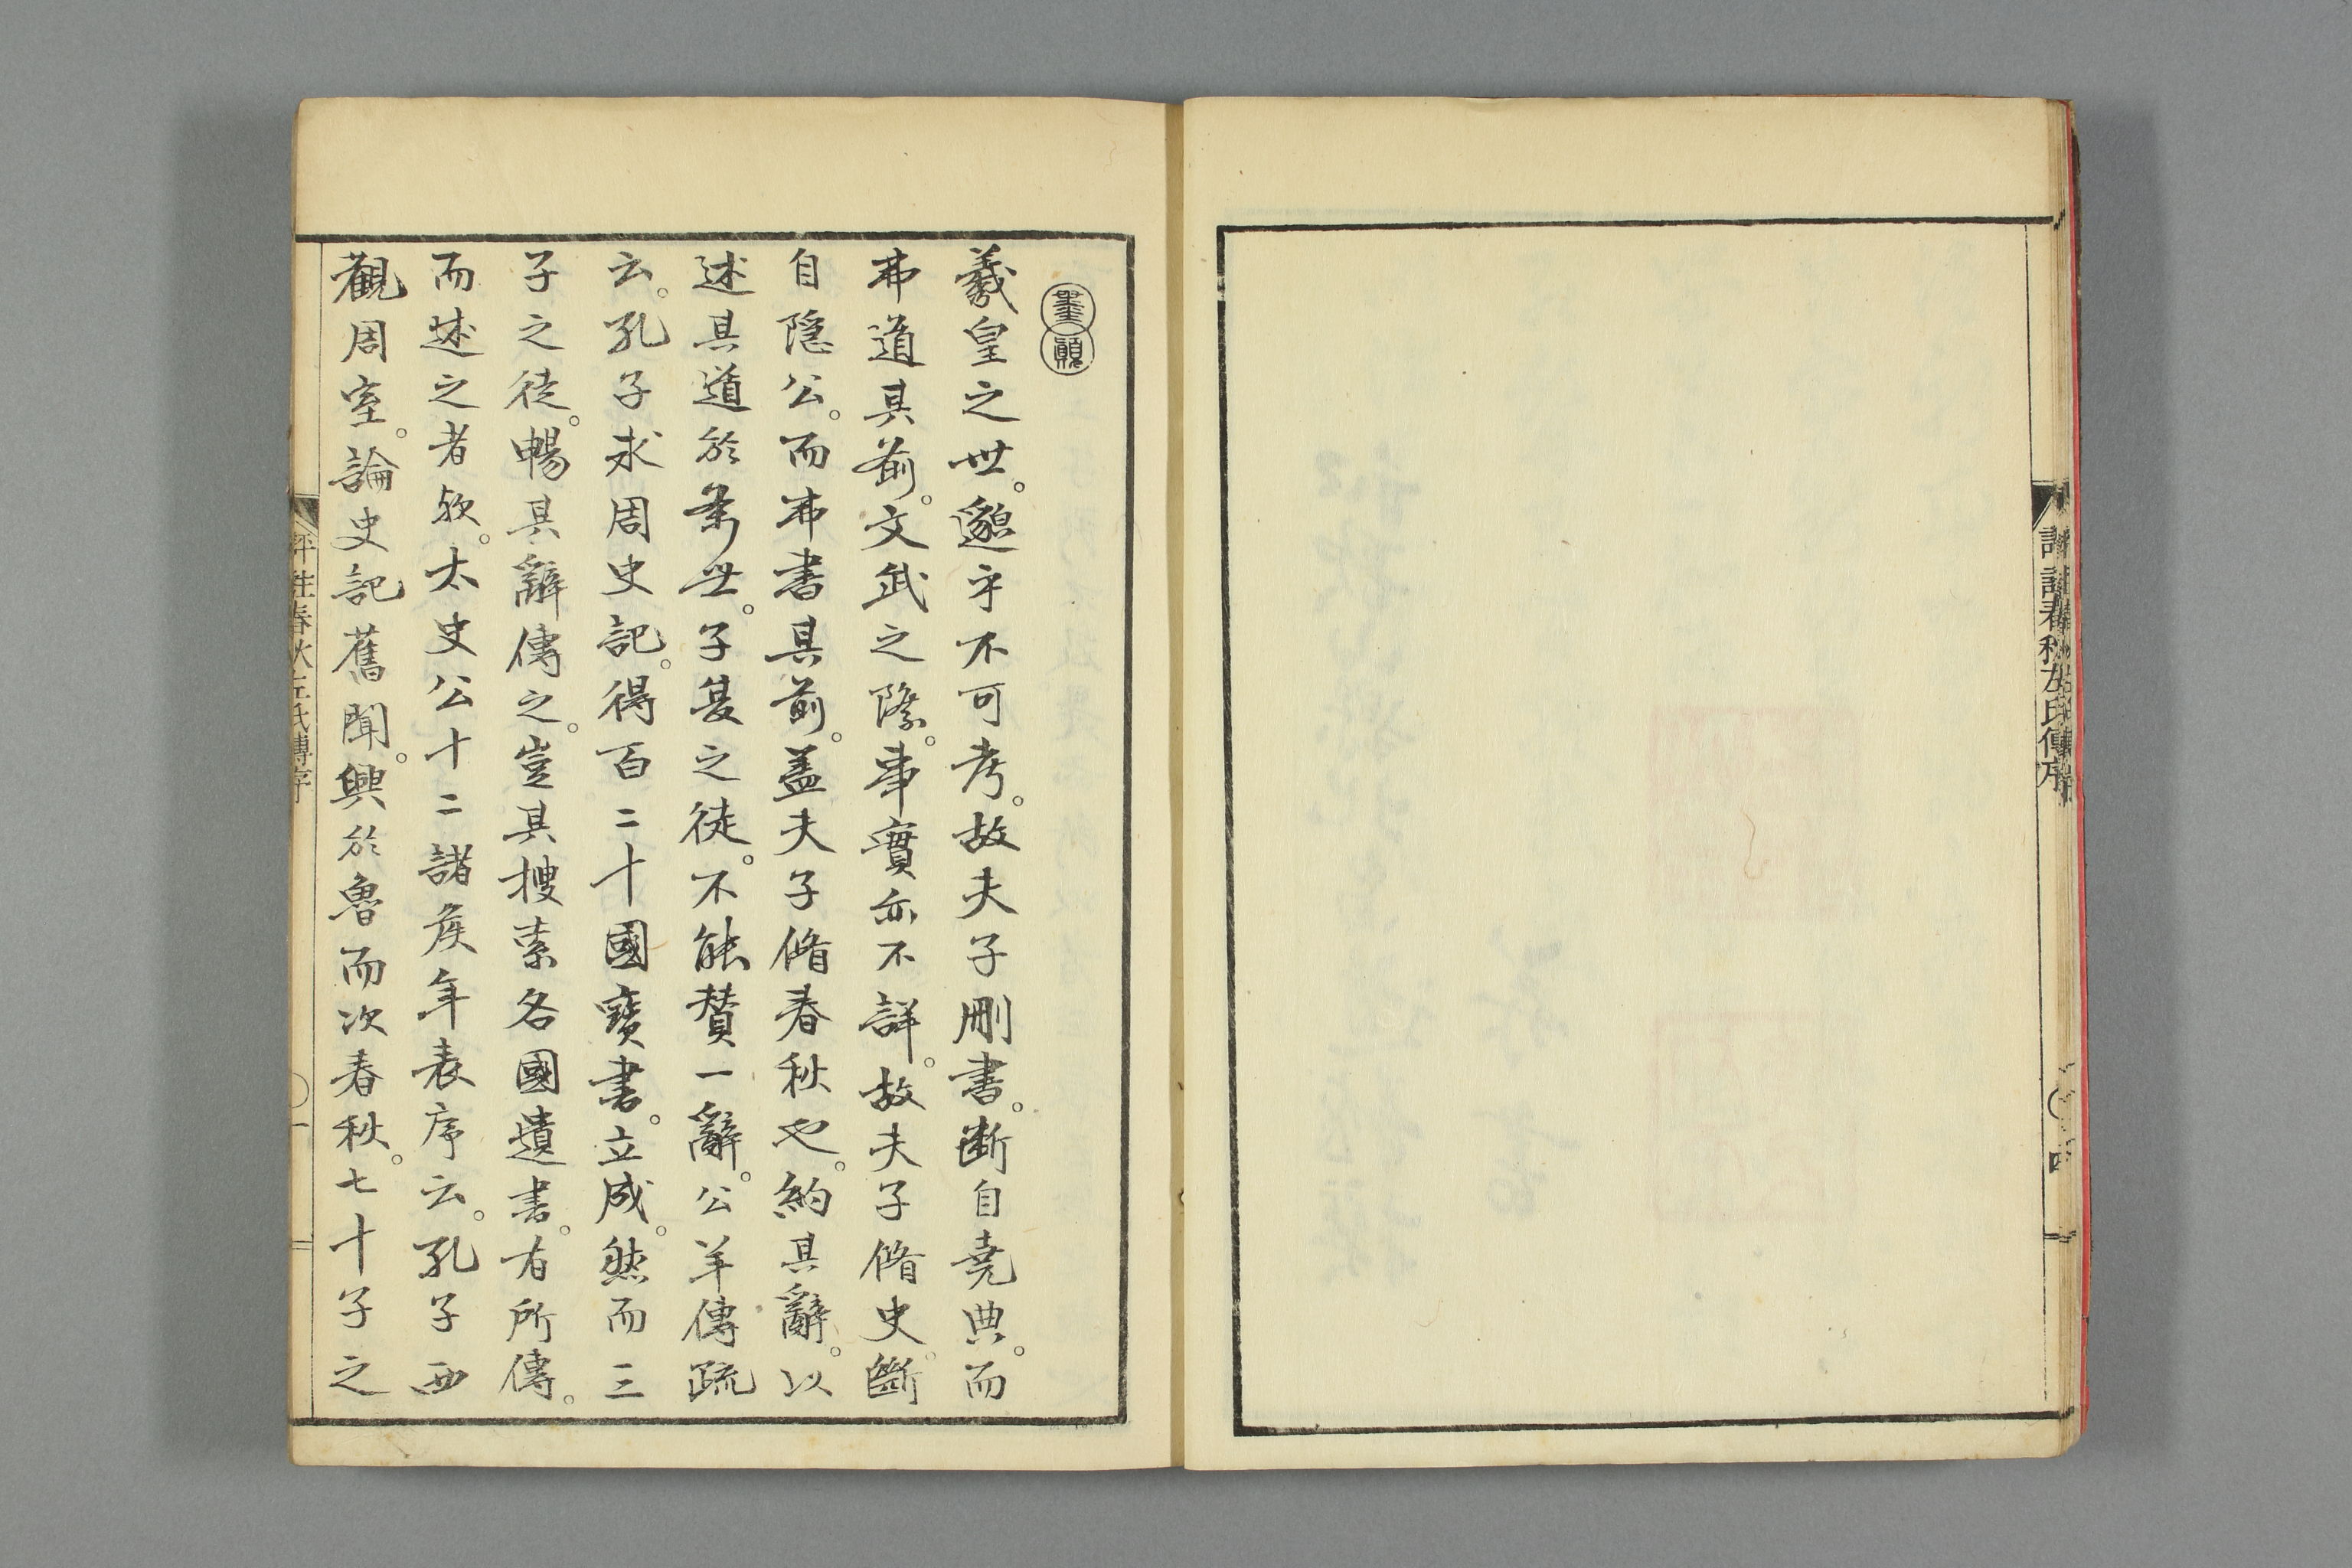 評註春秋左氏傳序
四
羲皇之世。邈乎不可考。故夫子刪書。断自堯典。而
弗道其前。文武之際。事實亦不詳。故夫子脩史。斷
自隱公。而弗書其前。蓋夫子脩春秋也。約其辭。以
述其道於来世。子夏之徒。不能贊一辭。公羊傳疏
云。孔子求周史記。得百二十國寶書。立成。然而三
子之徒。暢其辭傳之。豈其搜索各國遺書。有所傳。
而述之者欤。太史公十二諸侯年表序云。孔子西
觀周室。論史記舊聞。興於魯而次春秋。七十子之
評註春秋左氏傳序
一